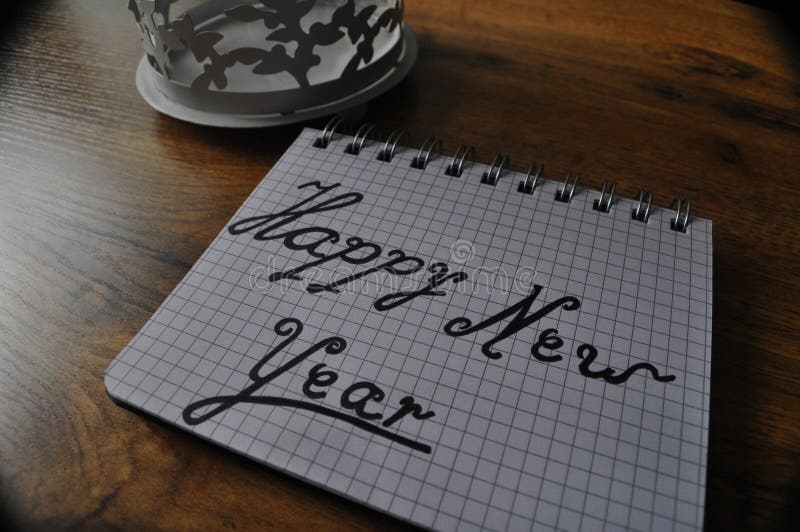 Happy New
Year
dreamstime